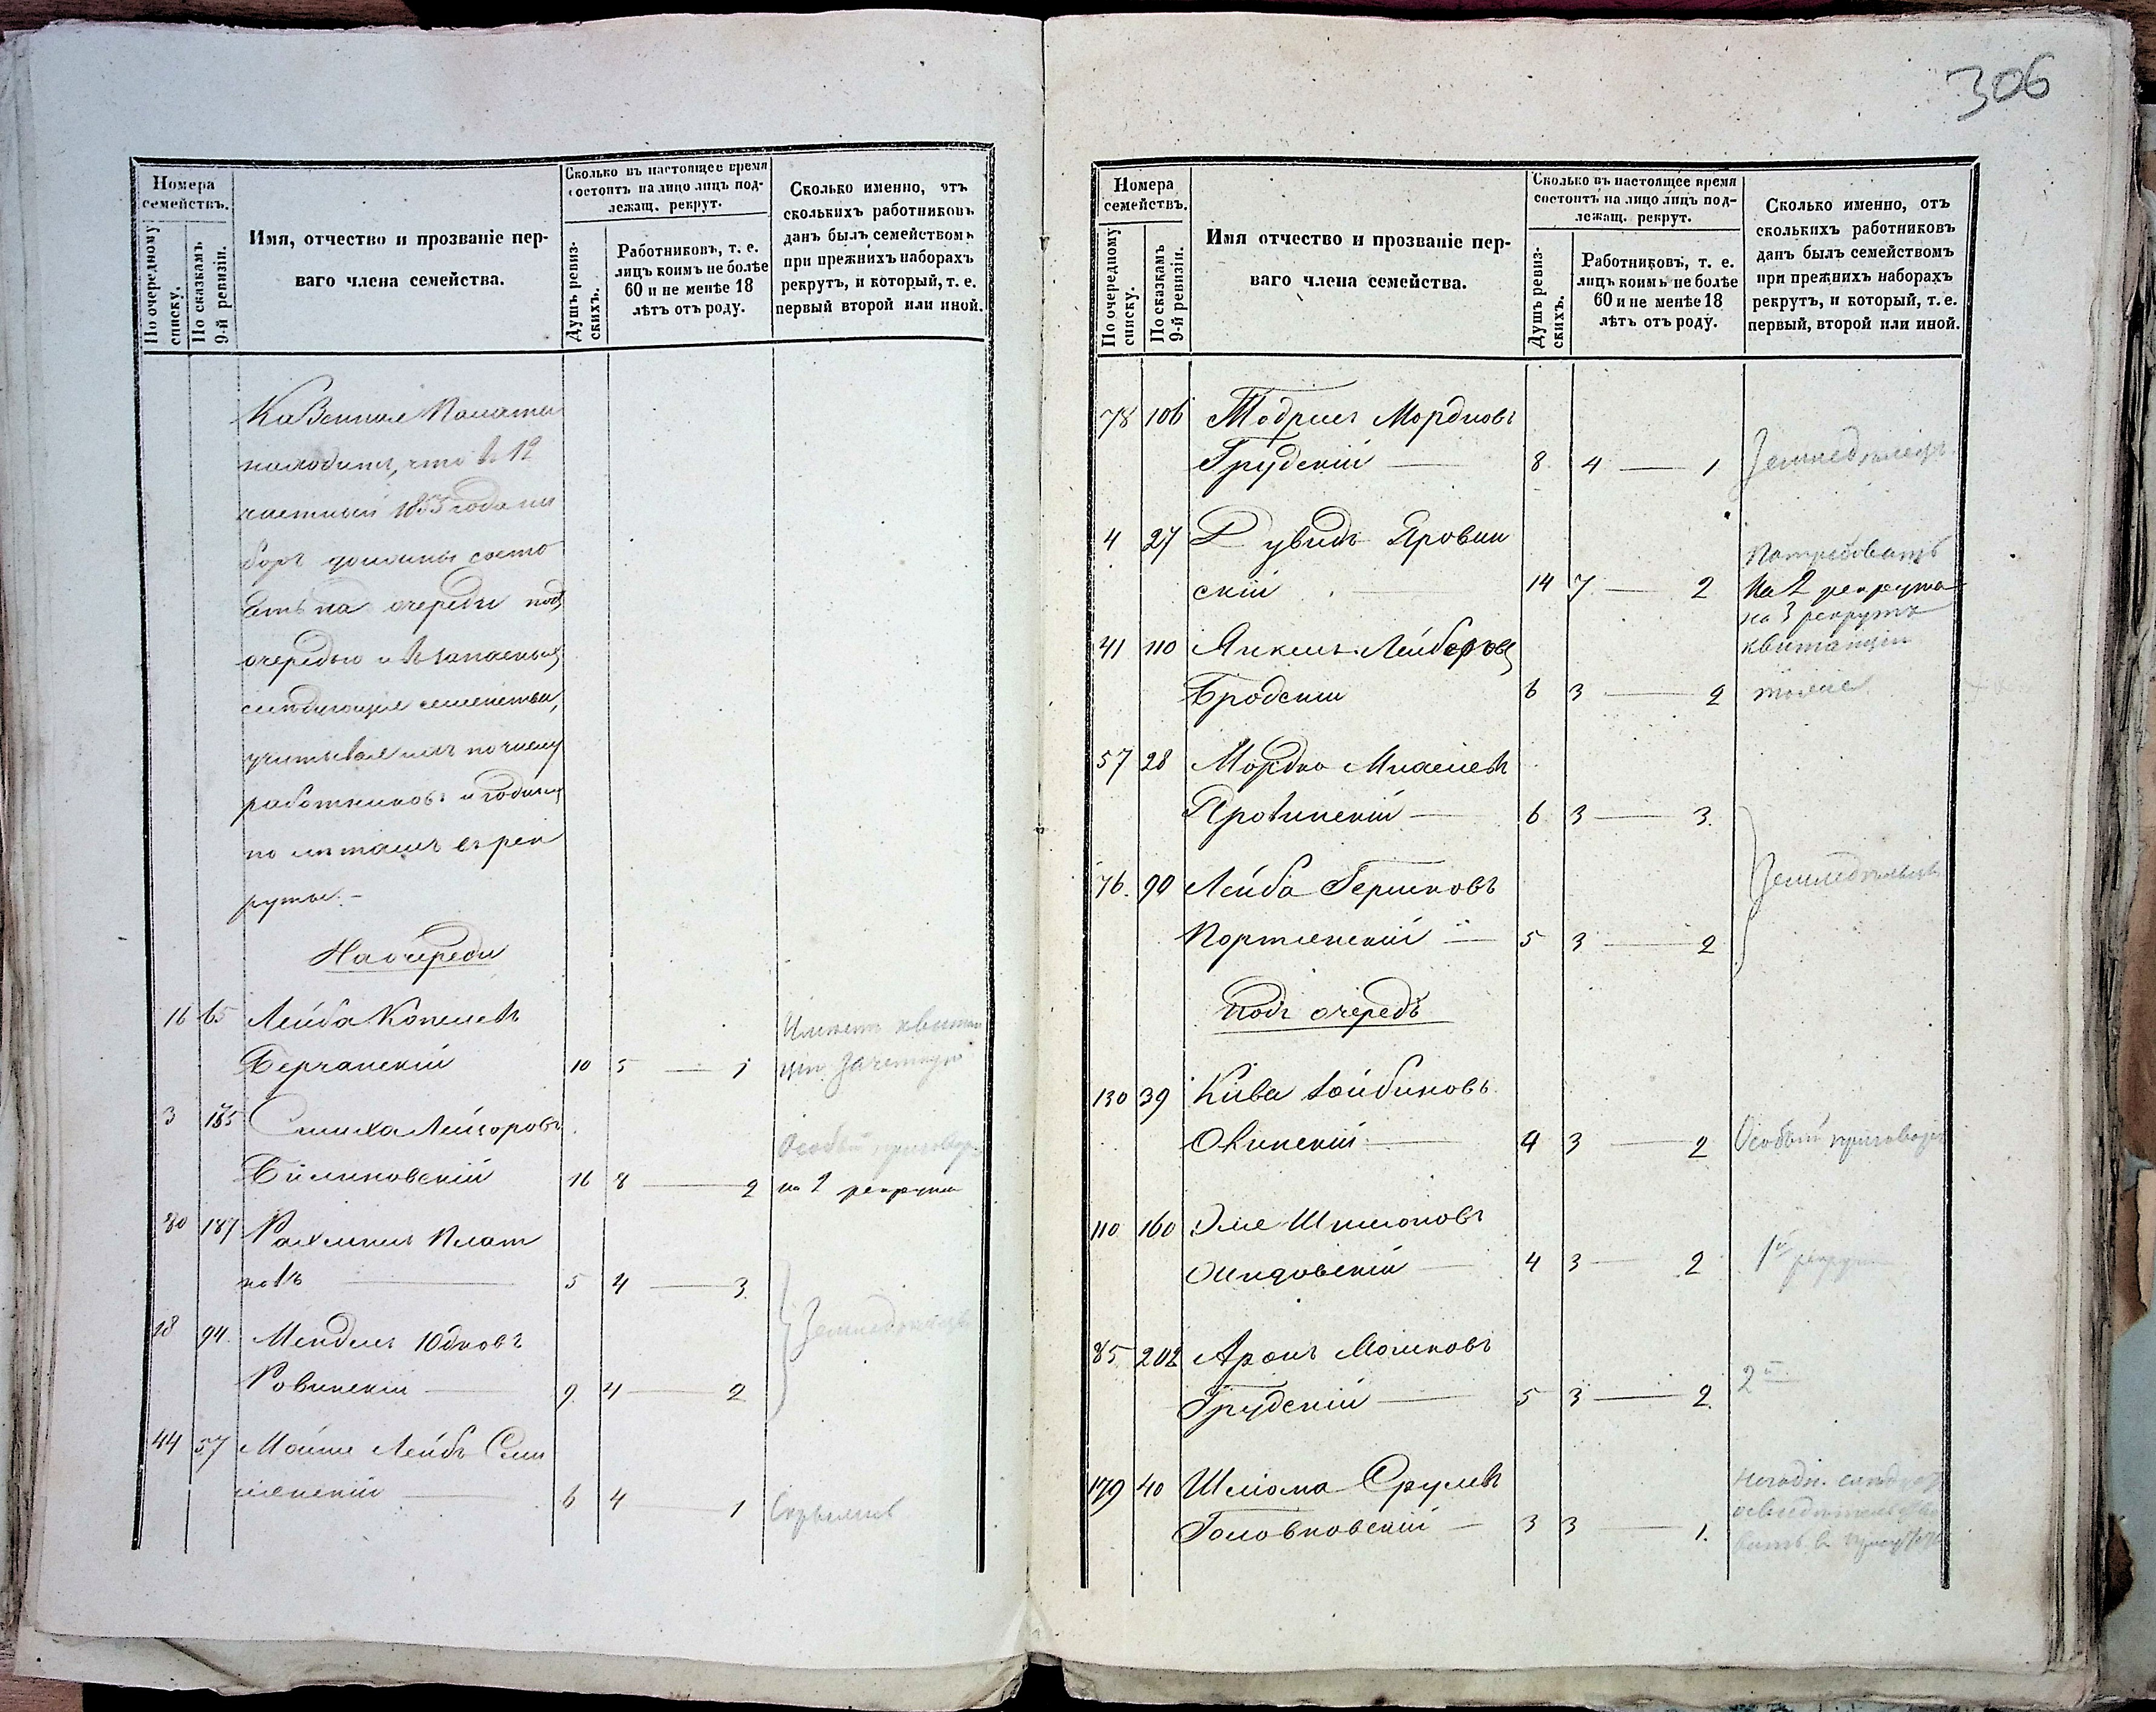 306
Номера
семействъ.
По очередному
списку.
По сказкамъ
9-й ревизіи.
Имя, отчество и прозваніе пер-
ваго члена семейства.
Сколько въ настоящее время
состоитъ на лицо лицъ под-
лежащ. рекрут.
Душъ ревиз-
скихъ.
Работниковъ, т. е.
лицъ коимъ не болѣе
60 и не менѣе 18
лѣтъ отъ роду.
Сколько именно, отъ
сколькихъ работниковъ
данъ былъ семействомъ
при прежнихъ наборахъ
рекрутъ, и который, т. е.
первый второй или иной.
Казенная Палата
находитъ, что в 12
частный 1855 года на
боръ должны состо
ять на очереди подъ
очередью и въ запасныхъ
слѣдующія семейства,
учитывая ихъ по числу
работниковъ и годныхъ
по лѣтамъ въ рек
руты.-
На очереди
16 65 Лейба Копелевъ
Берчанскій 10 5 — 1
Имѣетъ квитан
цію зачетную
3 185 Симха Лейзоровъ
Билиловскій 16 8 — 2
Особый приговоръ
на 2 рекрута
80 187 Рахмиль Плат
новъ — 5 4 — 3
18 94. Мендель Юдковъ
Ровинскій — 9 4 — 2
Земледѣльцы
44 57 Мойше Лейбъ Сми
лянскій — 6 4 — 1
Номера
семействъ.
По очередному
списку.
По сказкамъ
9-й ревизіи.
Имя отчество и прозваніе пер-
ваго члена семейства.
Сколько въ настоящее время
состоитъ на лицо лицъ под-
лежащ. рекрут.
Душъ ревиз-
скихъ.
Работниковъ, т. е.
лицъ коимъ не болѣе
60 и не менѣе 18
лѣтъ отъ роду.
Сколько именно, отъ
сколькихъ работниковъ
данъ былъ семействомъ
при прежнихъ наборахъ
рекрутъ, и который, т. е.
первый, второй или иной.
78 106 Тодрисъ Мордковъ
Грудскій — 8 4 — 1 Земледѣлецъ
4 27 Дувидъ Яровин
скій 14 7 — 2
Потребовать
На 2 рекрута
на 3 рекрутъ
квитанціи
41 110 Янкель Лейборовъ
Бродскій 6 3 — 2 тоже
57 28 Мордко Мисилевъ
Яровинскій — 6 3 — 3.
76. 90 Лейба Гершковъ
Портянскій — 5 3 — 2
Земледѣльцы
Подъ очередь
130 39 Кива Лейбиковъ
Овинскій — 4 3 — 2 Особый приговоръ
110 160 Эле Шимоновъ
4 3 — 2 1й рекрутъ
85 202 Аронъ Мошковъ
Грудскій — 5 3 — 2. 2й
179 40 Шлiома Срулевъ
Головковскій — 3 3 — 1.